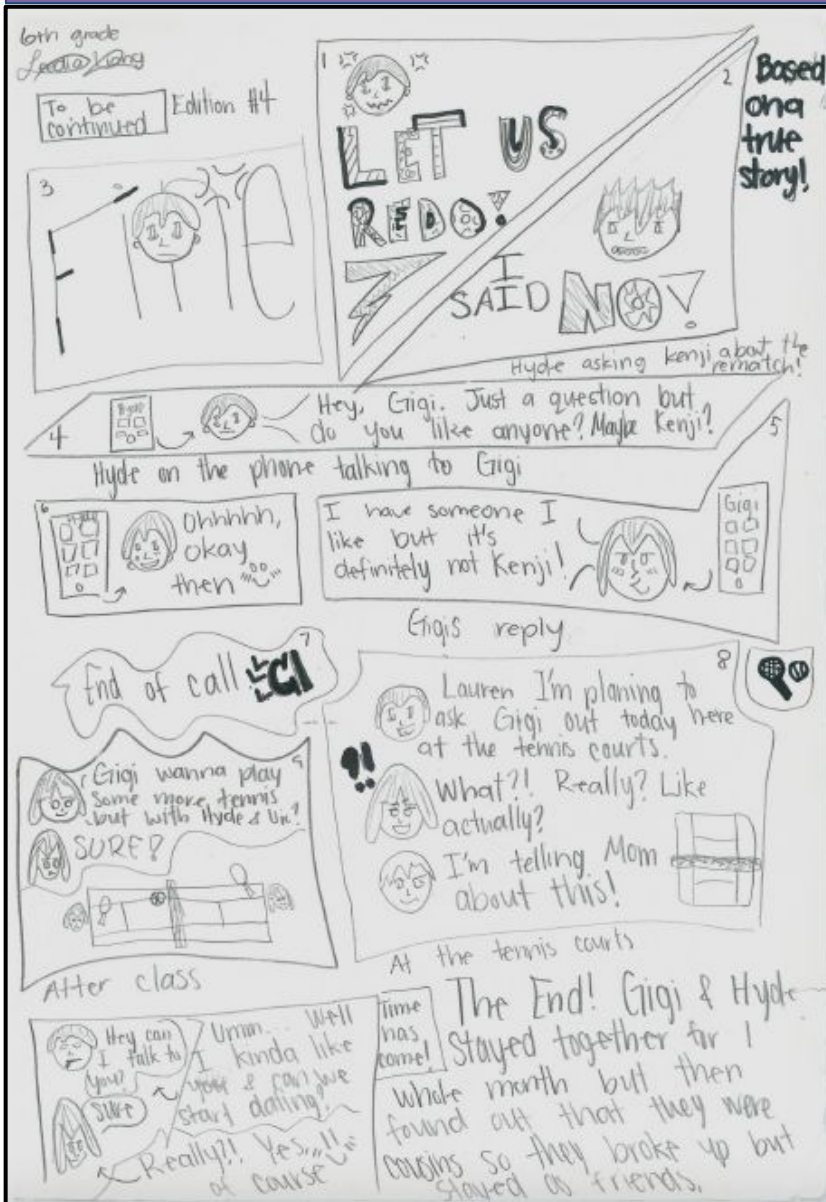 6th grade
To be
continued
Edition #4
1
LET US
REDO!
2
Based
on a
true
story!
I
SAID NO!
Hyde asking Kenji about the
rematch!
3
Fine
4
Hey, Gigi. Just a question but
do you like anyone? Maybe Kenji?
Hyde on the phone talking to Gigi
5
I have someone I
like but it's
definitely not Kenji!
Gigi
Gigis reply
6
Ohhhhh,
okay
then
7
End of call
8
Lauren I'm planing to
ask Gigi out today here
at the tennis courts.
?!
What?! Really? Like
actually?
I'm telling Mom
about this!
At the tennis courts
9
Gigi wanna play
some more tennis
but with Hyde &
SURE!
After class
Hey can
I talk to
you?
Sure
Umm... Well
I kinda like
you & can we
start dating?
Really?! Yes
of course
Time
has
come!
The End! Gigi & Hyde
stayed together for 1
whole month but then
found out that they were
cousins so they broke up but
stayed as friends.